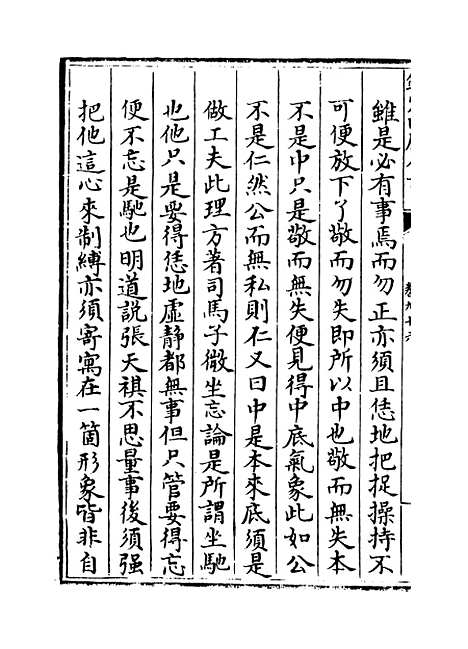 雖是必有事焉而勿正亦須且恁地把捉操持不
可便放下了敬而勿失即所以中也敬而無失本
不是中只是敬而無失便見得中底氣象此如公
不是仁然公而無私則仁又曰中是本來底須是
做工夫此理方著司馬子微坐忘論是所謂坐馳
也他只是要得恁地虛静都無事但只管要得忘
便不忘是馳也明道說張天祺不思量事後須强
把他這心來制縛亦須寄寓在一箇形象皆非自
卷九十六